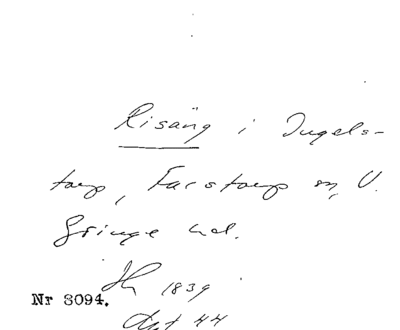 Risäng i Ingels-
torp, Farstorp sn, V.
Göinge hd.
1839
Nr 8094.
44